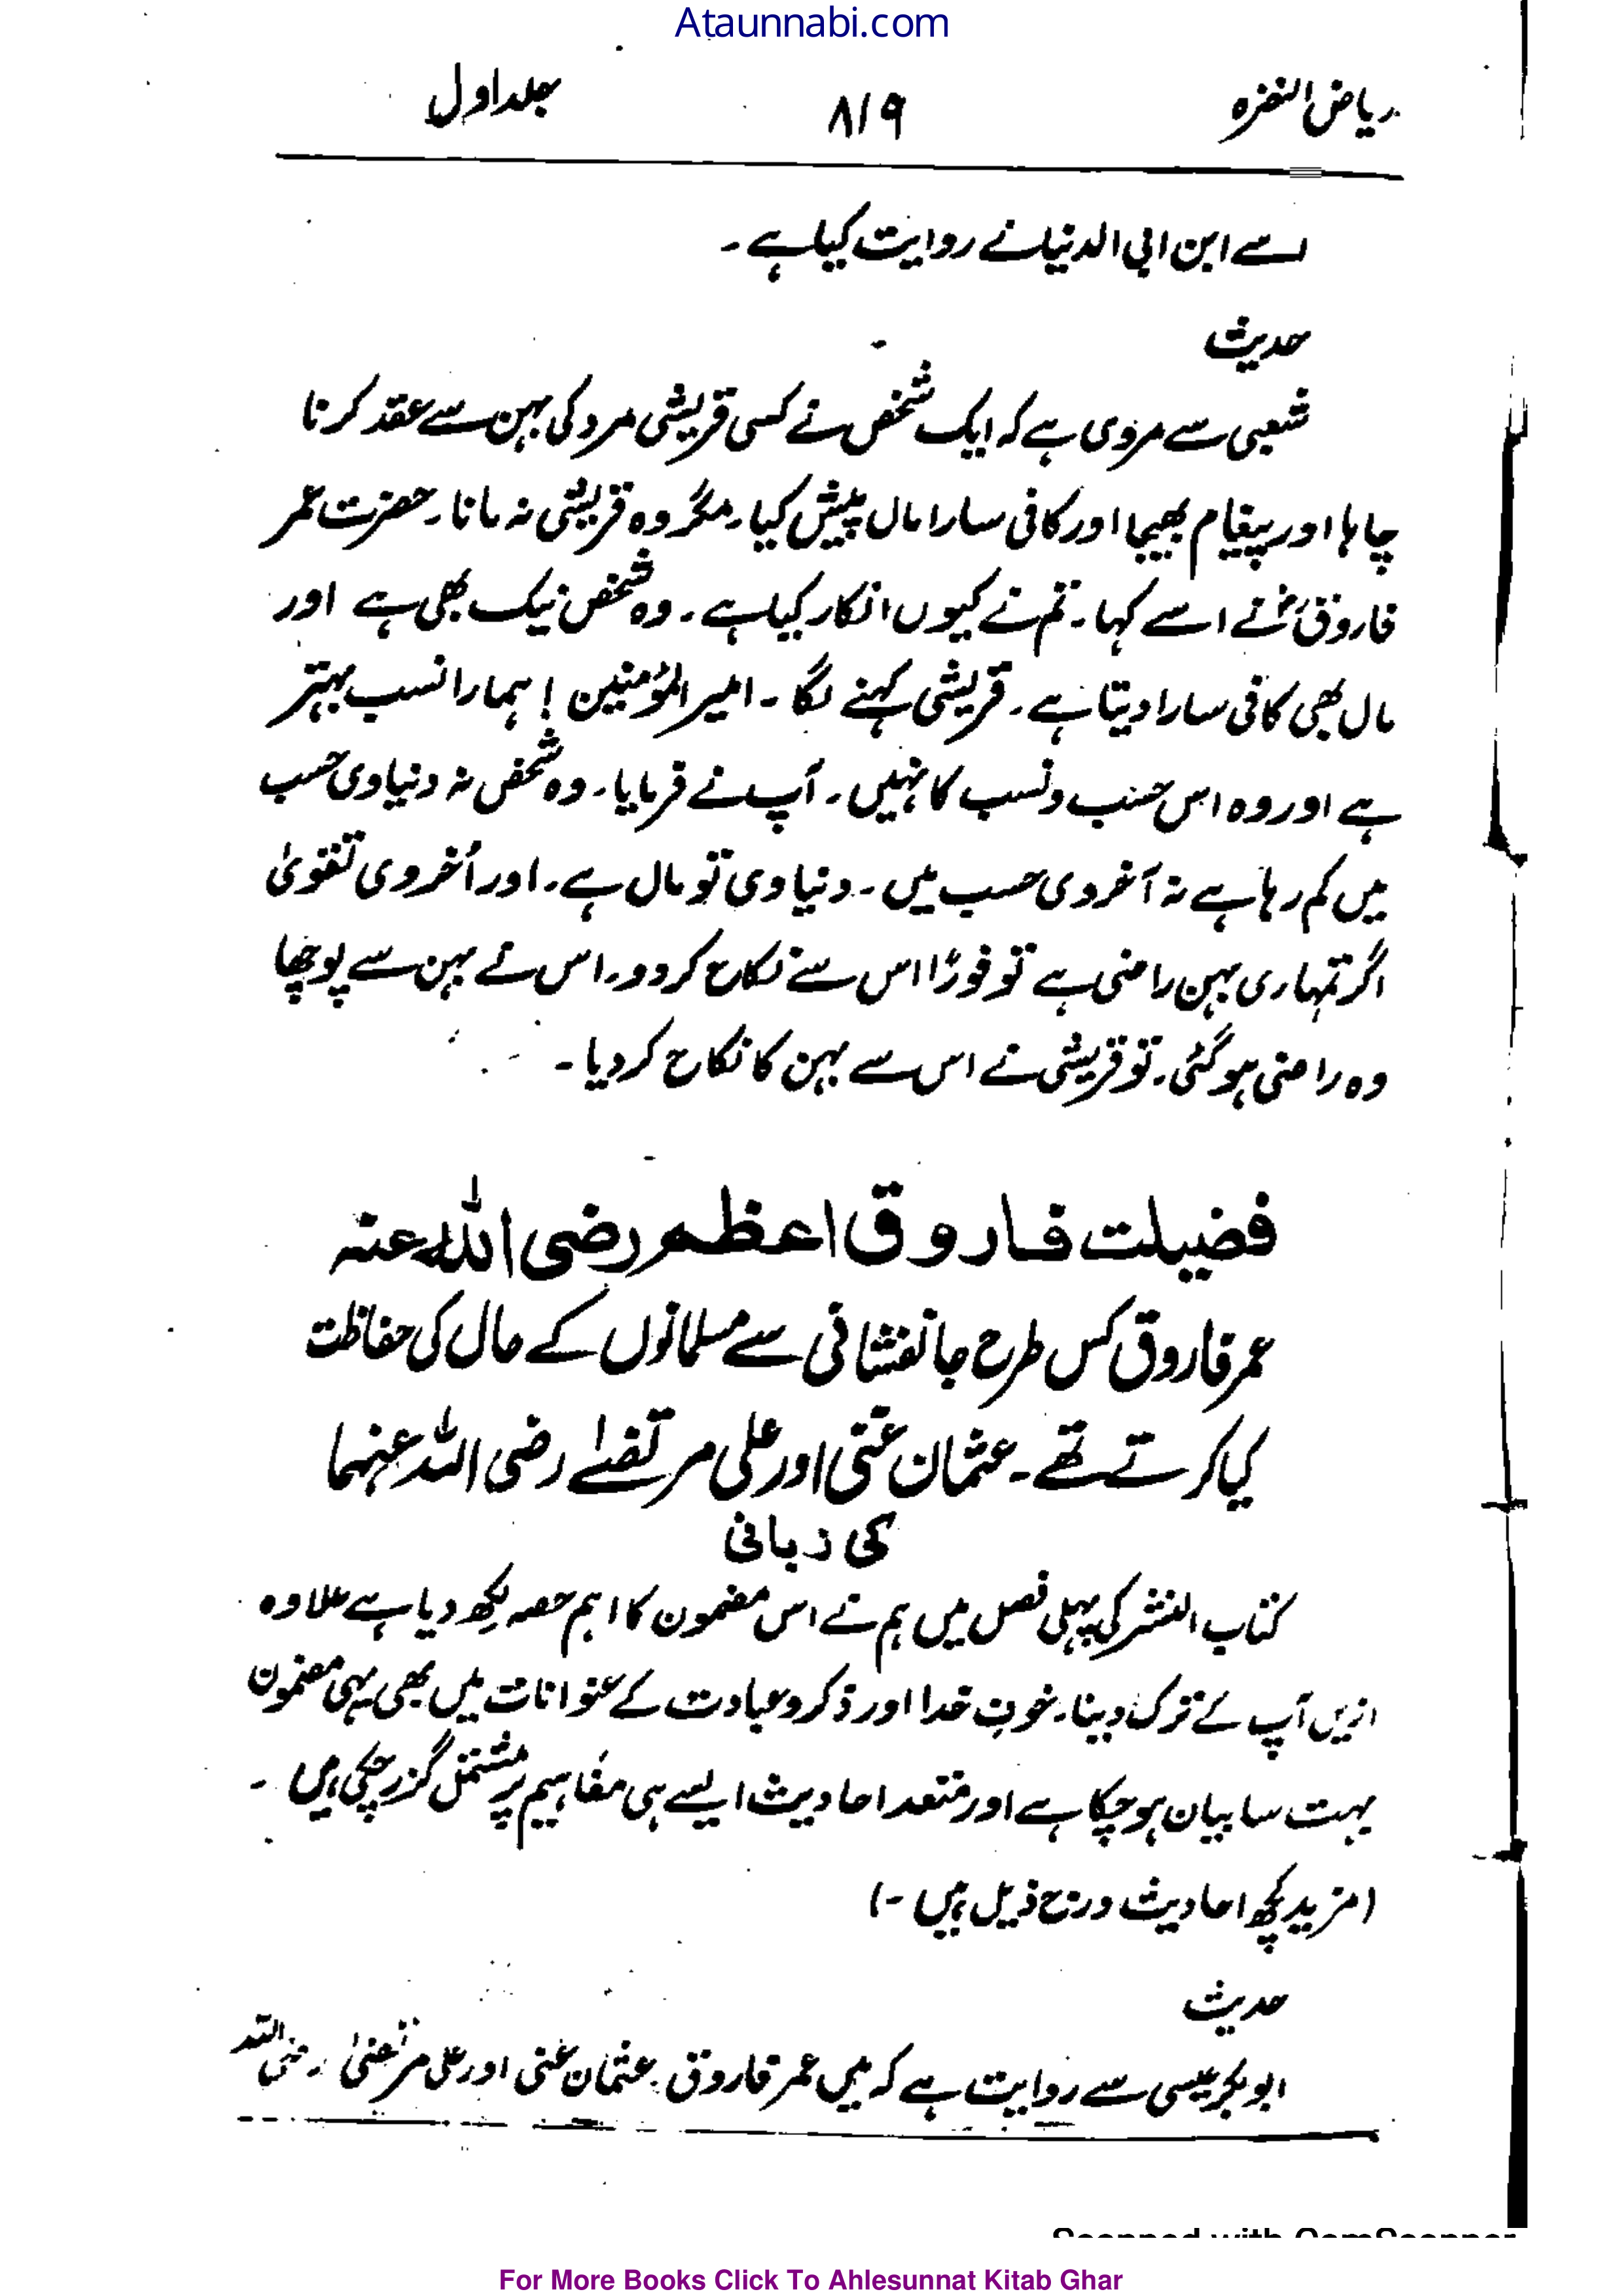 Ataunnabi.com
ریاض النضرہ ۸۱۹ جلد اول
اسے ابن ابی الدنیا نے روایت کیا ہے۔
حدیث
شعبی سے مروی ہے کہ ایک شخص نے کسی قریشی مرد کی بہن سے عقد کرنا
چاہا اور پیغام بھیجا اور کافی سارا مال پیش کیا۔ مگر وہ قریشی نہ مانا۔ حضرت عمر
فاروق رضؓ نے اسے کہا۔ تم نے کیوں انکار کیا ہے۔ وہ شخص نیک بھی ہے اور
مال بھی کافی سارا دیتا ہے۔ قریشی کہنے لگا۔ امیر المؤمنین! ہمارا نسب بہتر
ہے اور وہ اس حسب ونسب کا نہیں۔ آپ نے فرمایا۔ وہ شخص نہ دنیاوی حسب
میں کم رہا ہے نہ آخروی حسب میں۔ دنیاوی تو مال ہے۔ اور اُخروی تقویٰ
اگر تمہاری بہن راضی ہے تو فورًا اس سے نکاح کر دو۔ اس نے بہن سے پوچھا
وہ راضی ہوگئی۔ تو قریشی نے اس سے بہن کا نکاح کر دیا۔
فضیلت فاروق اعظم رضی اللہ عنہ
عمر فاروق کس طرح جانفشانی سے مسلمانوں کے مال کی حفاظت
کیا کرتے تھے۔ عثمان غنی اور علی مرتضےٰ رضی اللہ عنہما
کی زبانی
کتاب النشر کی پہلی فصل میں ہم نے اس مضمون کا اہم حصہ لکھ دیا ہے علاوہ
ازیں آپ کے ترک دینا۔ خوف خدا اور ذکر و عبادت کے عنوانات میں بھی یہی مضمون
بہت سا بیان ہو چکا ہے اور متعدد احادیث ایسے ہی مفاہیم پر مشتمل گزر چکی ہیں۔
(مزید کچھ احادیث درج ذیل ہیں۔)
حدیث
ابوبکر عیسی سے روایت ہے کہ میں عمر فاروق۔ عثمان غنی اور علی مرتضیٰ رضی اللہ
For More Books Click To Ahlesunnat Kitab Ghar